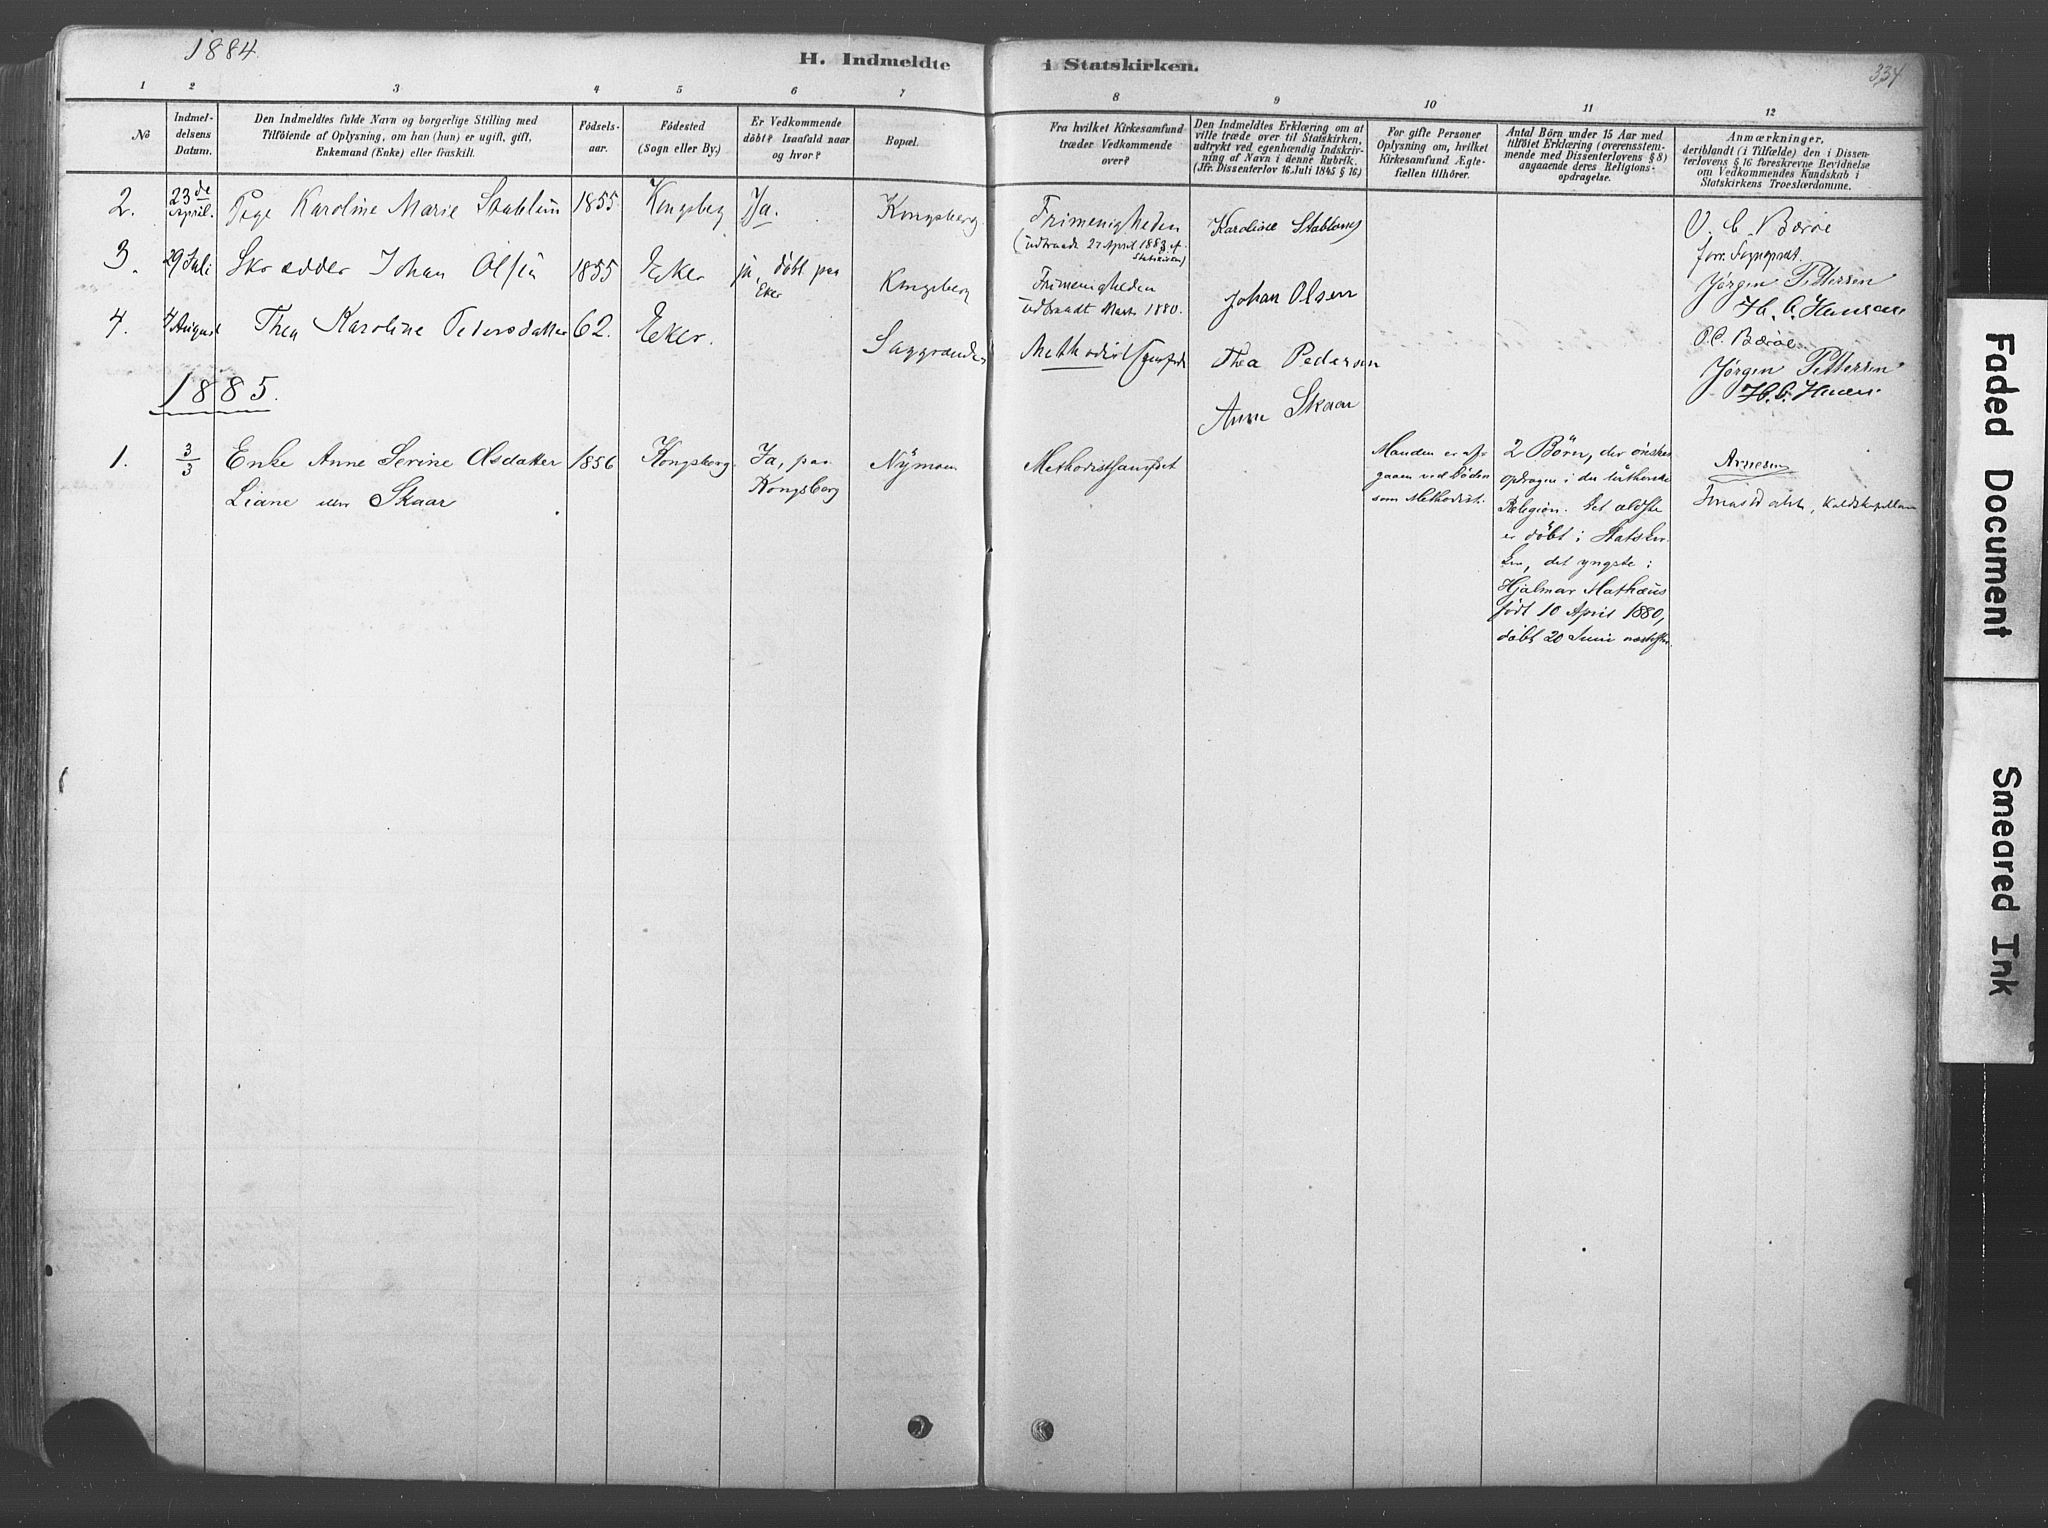 1884.
H. Indmeldte i Statskirken.
334
1 2 3 4 5 6 7 8 9 10 11 12
No
Indmel-
delsens
Datum.
Den Indmeldtes fulde Navn og borgerlige Stilling med
Tilföiende af Oplysning, om han (hun) er ugift, gift,
Enkemand (Enke) eller fraskilt.
Födsels-
aar.
Födested
(Sogn eller By.)
Er Vedkommende
döbt? Isaafald naar
og hvor?
Bopæl.
Fra hvilket Kirkesamfund
træder Vedkommende
over?
Den Indmeldtes Erklæring om at
ville træde over til Statskirken,
udtrykt ved egenhændig Indskriv-
ning af Navn i denne Rubrik.
(Jfr. Dissenterlov 16. Juli 1845 § 16)
For gifte Personer
Oplysning om, hvilket
Kirkesamfund Ægte-
fællen tilhörer.
Antal Börn under 15 Aar med
tilföiet Erklæring (overensstem-
mende med Dissenterlovens § 8)
angaaende deres Religions-
opdragelse.
Anmærkninger,
deriblandt (i Tilfælde) den i Dissen-
terlovens § 16 foreskrevne Bevidnelse
om Vedkommendes Kundskab i
Statskirkens Troeslærdomme.
2.
23de
April.
Pige Karoline Marie Stablum
1855
Kongsberg
Ja.
Kongsberg.
Frimenigheden
(udtraadt 27 April 1883 af
Statskirken)
Karoline
O. C. Barøe
forr. Sognepræst.
3.
29 Juli
Skrædder Johan Olsen
1855
Eker
ja, döbt paa
Eker
Kongsberg
Frimenigheden
udtraadt Marts 1880.
Johan Olsen
Jørgen Pettersen
H. C. Hansen
4.
4 August
Thea Karoline Pedersdatter
62.
Eker.
Saggrenden
Methodistsamfundet
Thea Pedersen
O. C. Barøe
Jørgen Pettersen
H. C. Hansen
1885.
Anne Skaar
1.
3/3
Enke Anne Serine Olsdatter
Liane eller Skaar
1856
Kongsberg
Ja, paa
Kongsberg
Nymoen
Methodistsamfdet
Manden er af-
gaaen ved Döden
som Methodist.
2 Börn, der önskes
opdragen i den lutherske
Religion. Det ældste
er döbt i Statskir-
ken, det yngste:
Hjalmar Mathæus
födt 10 April 1880,
döbt 20 Juni næstefter.
Arnesen
Faded Document
Smeared Ink